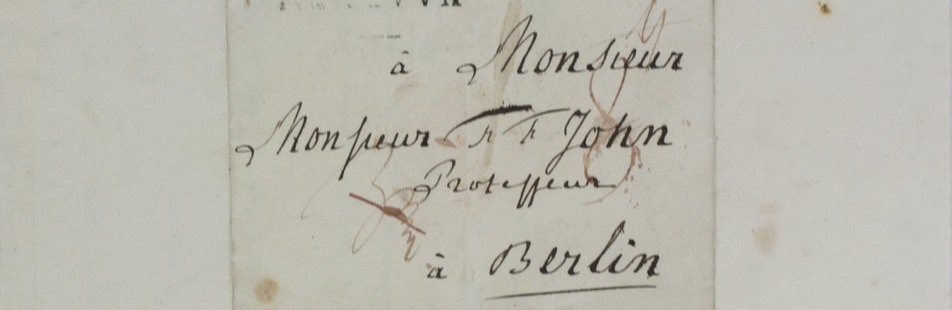 à Monsieur
Monsieur John
Professeur
à Berlin